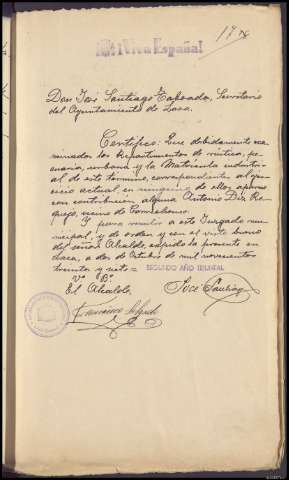 17
¡Viva España!
Don José Santiago Taboada, Secretario
del Ayuntamiento de Laza.
Certifico: Que debidamente exa-
minados los Repartimientos de rústica, pe-
cuaria, urbana y la Matrícula industri-
al de este término, correspondientes al ejer-
cicio actual, en ninguno de ellos aparece
con contribución alguna Antonio Diz Re-
quejo, vecino de
Y para remitir a este Juzgado muni-
cipal, y de orden y con el visto bueno
del señor Alcalde, expido la presente en
Laza, a dos de Octubre de mil novecientos
treinta y siete =
SEGUNDO AÑO TRIUNFAL
Vº Bº
El Alcalde,
José Santiago
Francisco